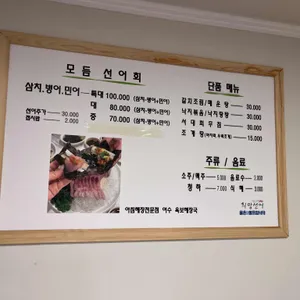 모듬 선어회
삼치,병어,민어 — 특대 100.000 (삼치+병어+민어)
대 80.000 (삼치+병어+민어)
중 70.000 (삼치+병어+민어)
선어추가 30.000
접시밥 2.000
단품 메뉴
갈치조림/매운탕 30.000
낙지볶음/낙지탕탕 30.000
서대회무침 30.000
조개탕 15.000
주류 / 음료
소주/맥주 음료수
청하 7.000 식혜 3.000
아침해장전문점 여수